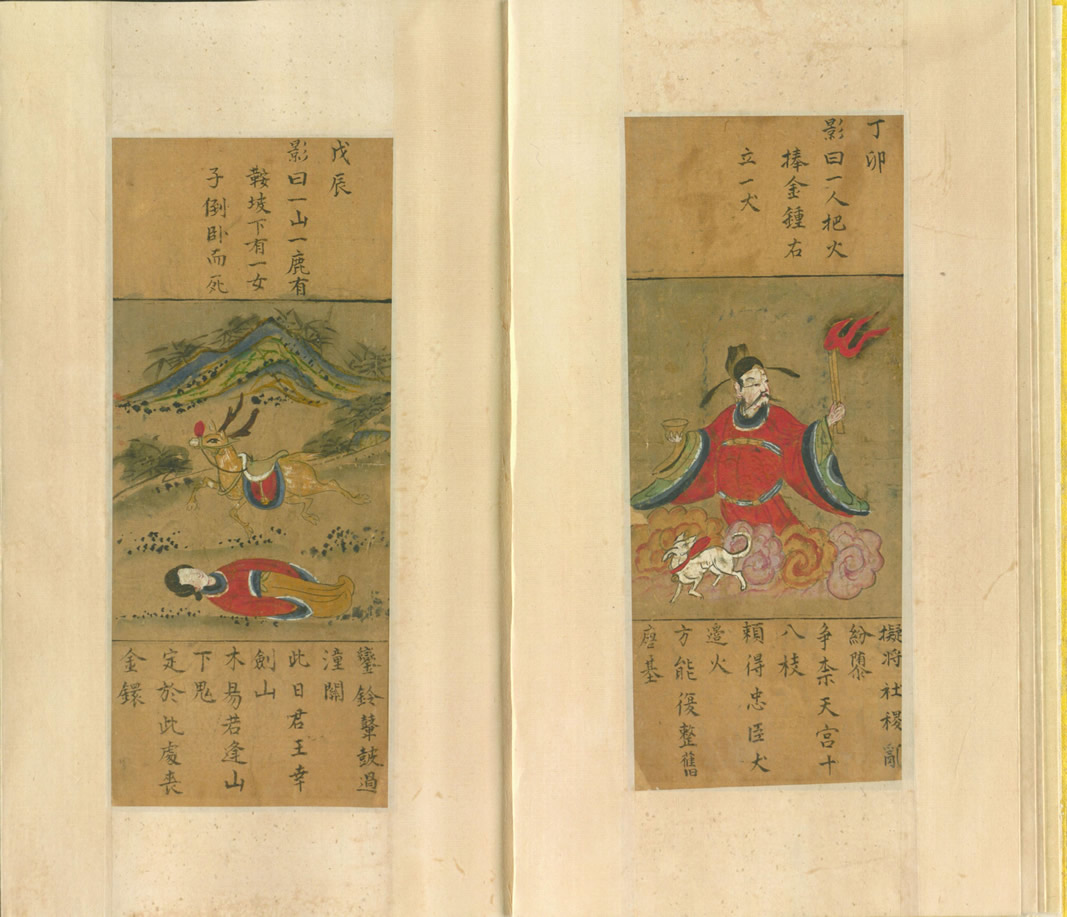 丁卯
影曰一人把火
捧金鍾右
立一犬
擬將社稷亂
紛
争柰天宫十
八枝
賴得忠臣犬
邉火
方能復整舊
基
戊辰
影曰一山一鹿有
鞍坡下有一女
子倒卧而死
鑾鈴鼙皷過
潼關
此日君王幸
劍山
木易若逢山
下鬼
定於此處喪
金鐶